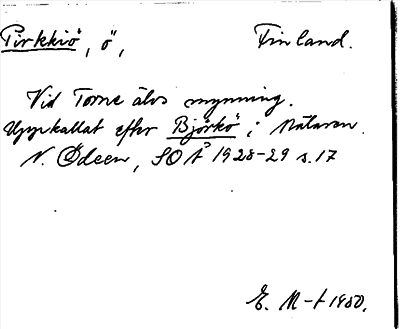 Pirkkiö, ö, Finland.
Vid Torne älvs mynning.
Uppkallat efter Björkö i Mälaren.
N. Ödeen, SOÅ 1928-29 s. 17
E. M-t 1950.